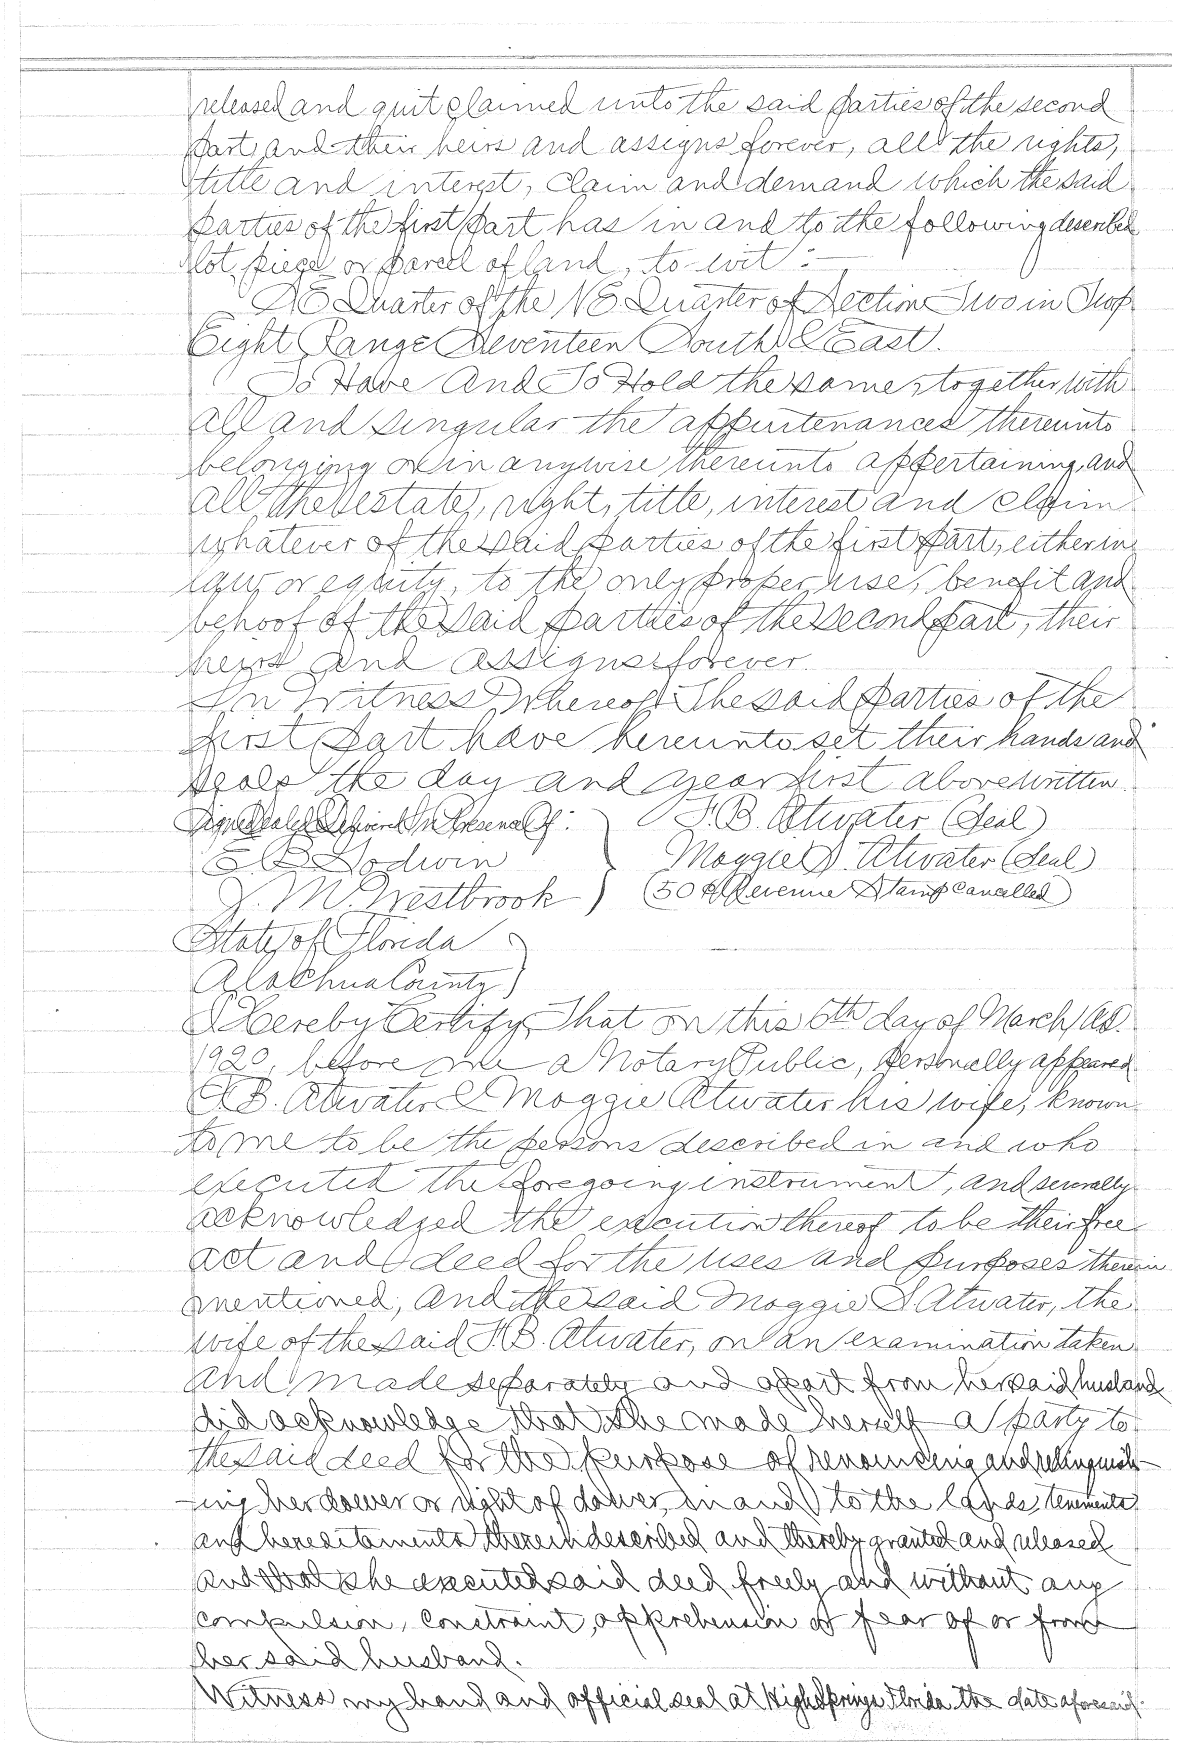 released and quit claimed unto the said parties of the second
part and their heirs and assigns forever, all the rights,
title and interest, claim and demand which the said
parties of the first part has in and to the following described
lot, piece or parcel of land, to-wit:—
Quarter of the NE Quarter of Section Two in Twp
Eight Range Seventeen South & East.
To Have And To Hold the same, together with
all and singular the appurtenances thereunto
belonging or in anywise thereunto appertaining, and
all the estate, right, title, interest and claim
whatever of the said parties of the first part, either in
law or equity, to the only proper use, benefit and
behoof of the said parties of the second part, their
heirs and assigns forever.
In Witness Whereof, The said parties of the
first part have hereunto set their hands and
seals the day and year first above written.
Signed Sealed & Delivered In Presence Of: } F.B. Atwater (Seal)
E B Godwin Maggie S. Atwater (Seal)
J. M. Westbrook (50¢ Revenue Stamp Cancelled)
State of Florida }
Alachua County }
I Hereby Certify, That on this day of March, A.D.
1920, before me a Notary Public, personally appeared
F.B. Atwater & Maggie Atwater his wife, known
to me to be the persons described in and who
executed the foregoing instrument, and severally
acknowledged the execution thereof to be their free
act and deed for the uses and purposes therein
mentioned; and the said Maggie S. Atwater, the
wife of the said F.B. Atwater, on an examination taken
and made separately and apart from her said husband
did acknowledge that she made herself a party to
the said deed for the purpose of renouncing and relinquish-
ing her dower or right of dower, in and to the lands, tenements
and hereditaments therein described and thereby granted and released
and that she executed said deed freely and without any
compulsion, constraint, apprehension or fear of or from
her said husband.
Witness my hand and official seal at High Springs Florida the date aforesaid.